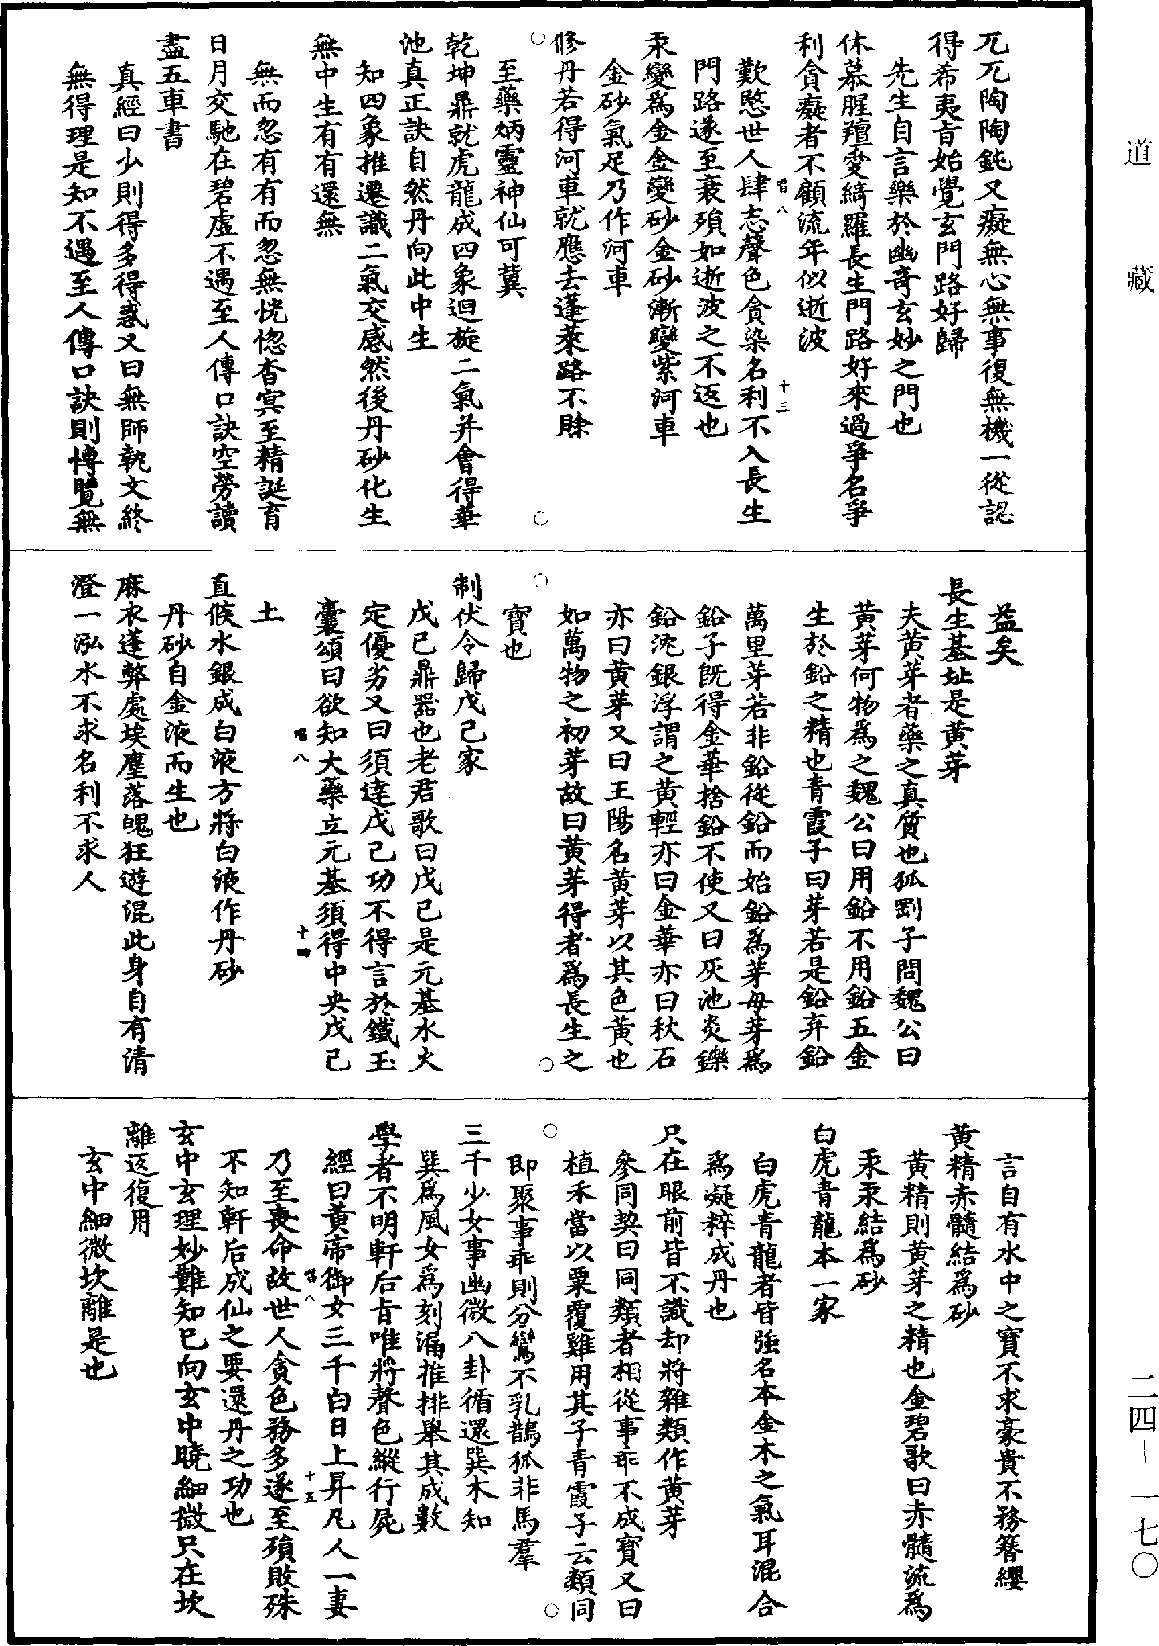 道藏
兀兀陶陶鈍又癡無心無事復無機一從認
得希夷旨始覺玄門路好歸
先生自言樂於幽奇玄妙之門也
休慕腥羶愛綺羅長生門路好來過爭名爭
利貪癡者不顧流年似逝波
歎愍世人肆志聲色貪染名利不入長生
門路遂至衰殞如逝波之不返也
汞變爲金金變砂金砂漸變紫河車
金砂氣足乃作河車
修丹若得河車就應去蓬萊路不賖
至藥炳靈神仙可冀
乾坤鼎就虎龍成四象迴旋二氣并會得華
池真正訣自然丹向此中生
知四象推遷識二氣交感然後丹砂化生
無中生有有還無
無而忽有有而忽無恍惚杳冥至精誕育
日月交馳在碧虛不遇至人傳口訣空勞讀
盡五車書
真經曰少則得多得惑又曰無師執文終
無得理是知不遇至人傳口訣則博覽無
益矣
長生基址是黄芽
夫黄芽者藥之真質也狐剛子問魏公曰
黄芽何物爲之魏公曰用鉛不用鉛五金
生於鉛之精也青霞子曰芽若是鉛弃鉛
萬里芽若非鉛從鉛而始鉛爲芽母芽爲
鉛子既得金華捨鉛不使又曰灰池炎鑠
鉛沈銀浮謂之黄輕亦曰金華亦曰秋石
亦曰黄芽又曰王陽名黄芽以其色黄也
如萬物之初芽故曰黄芽得者爲長生之
寶也
制伏令歸戊己家
戊己鼎器也老君歌曰戊己是元基水火
定優劣又曰須達戊己功不得言於鐵玉
囊頌曰欲知大藥立元基須得中央戊己
土
直候水銀成白液方將白液作丹砂
丹砂自金液而生也
麻衣蓬弊處埃塵落魄狂遊混此身自有清
澄一泓水不求名利不求人
言自有水中之寶不求豪貴不務簪纓
黄精赤髓結爲砂
黄精則黄芽之精也金碧歌曰赤髓流爲
汞汞結爲砂
白虎青龍本一家
白虎青龍者皆強名本金木之氣耳混合
爲凝粹成丹也
只在眼前皆不識却將雜類作黄芽
參同契曰同類者相從事乖不成寶又曰
植禾當以粟覆雞用其子青霞子云類同
即聚事乖則分鸞不乳鵲狐非馬羣
三千少女事幽微八卦循還巽木知
巽爲風女爲刻漏推排舉其成數
學者不明軒后旨唯將聲色縱行屍
經曰黄帝御女三千白日上昇凡人一妻
乃至喪命故世人貪色務多遂至殞敗殊
不知軒后成仙之要還丹之功也
玄中玄理妙難知已向玄中曉細微只在坎
離返復用
玄中細微坎離是也
二四-一七〇